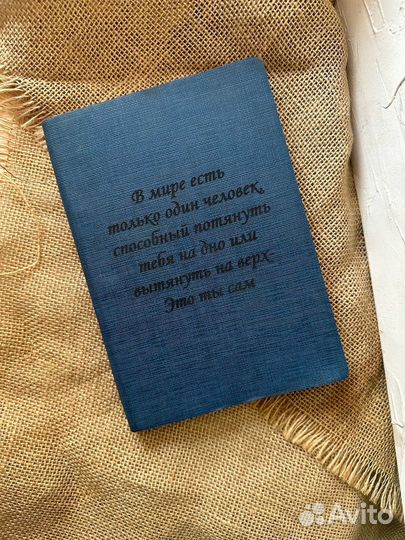 В мире есть
только один человек,
способный потянуть
тебя на дно или
вытянуть на верх-
Это ты сам
Avito